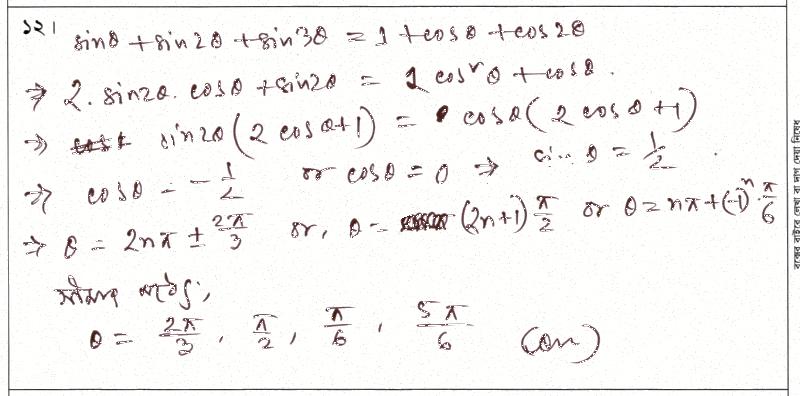 ১২। sinθ + sin2θ + sin3θ = 1 + cosθ + cos2θ
⇒ 2. sin2θ. cosθ + sin2θ = 2 cos²θ + cosθ.
⇒ sin2θ(2 cosθ+1) = cosθ(2 cosθ+1)
⇒ cosθ = -1/2 or cosθ = 0 ⇒ sinθ = 1/2
⇒ θ = 2nπ ± 2π/3 or, θ = (2n+1) π/2 or θ = nπ + (-1)ⁿ. π/6
θ = 2π/3, π/2, π/6, 5π/6 (Ans)
বক্সের বাইরে লেখা বা দাগ দেয়া নিষেধ